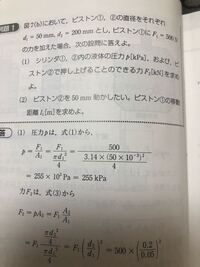 例題 1 図7(b)において，ピストン①，②の直径をそれぞれ
d₁ = 50 mm, d₂ = 200 mm とし，ピストン①に F₁ = 500 N
の力を加えた場合，次の設問に答えよ。
(1) シリンダ①，②内の液体の圧力 p[kPa]，および，ピ
ストン②で押し上げることのできる力 F₂[kN] を求め
よ。
(2) ピストン②を 50 mm 動かしたい。ピストン①の移動
距離 l₁[m] を求めよ。
答 (1) 圧力 p は，式(1)から，
p = F₁/A₁ = F₁/(πd₁²/4) = 500/(3.14 × (50 × 10⁻³)²/4)
= 255 × 10³ Pa = 255 kPa
力 F₂ は，式(3)から
F₂ = pA₂ = F₁ A₂/A₁
= F₁ (πd₂²/4)/(πd₁²/4) = F₁ (d₂/d₁)² = 500 × (0.2/0.05)²